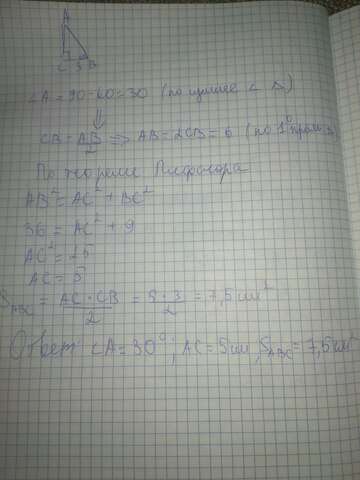 A
C 3 B
∠A = 90-60=30 (по сумме ∠ Δ)
CB = AB/2 ⇒ AB = 2CB = 6 (по 1° прям.Δ)
По теореме Пифагора
AB² = AC² + BC²
36 = AC² + 9
AC² = 25
AC = 5
S ABC = AC·CB/2 = 5·3/2 = 7,5 см²
Ответ: ∠A = 30°; AC = 5 см, S ABC = 7,5 см²